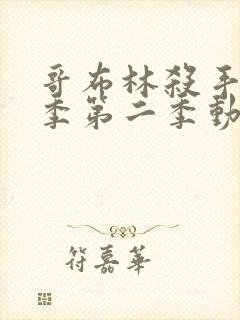 哥布林殺手
季第二季動
符嘉華